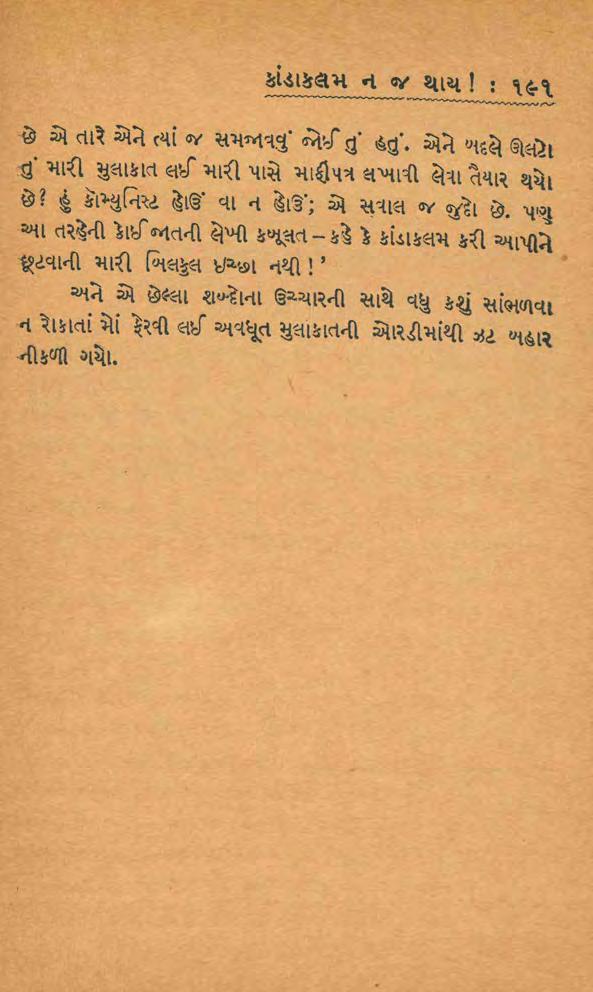 કાંડાકલમ ન જ થાય ! : ૧૯૧
છે એ તારે એને ત્યાં જ સમજાવવું જોઈતું હતું. એને બદલે ઊલટો
તું મારી મુલાકાત લઈ મારી પાસે માફીપત્ર લખાવી લેવા તૈયાર થયો
છે? હું કૉમ્યુનિસ્ટ હોઉં વા ન હોઉં; એ સવાલ જ જુદો છે. પણ
આ તરહેની કોઈ જાતની લેખી કબૂલત – કહે કે કાંડાકલમ કરી આપીને
છૂટવાની મારી બિલકુલ ઇચ્છા નથી ! ’
અને એ છેલ્લા શબ્દોના ઉચ્ચારની સાથે વધુ કશું સાંભળવા
ન રોકાતાં મોં ફેરવી લઈ અવધૂત મુલાકાતની ઓરડીમાંથી ઝટ બહાર
નીકળી ગયો.